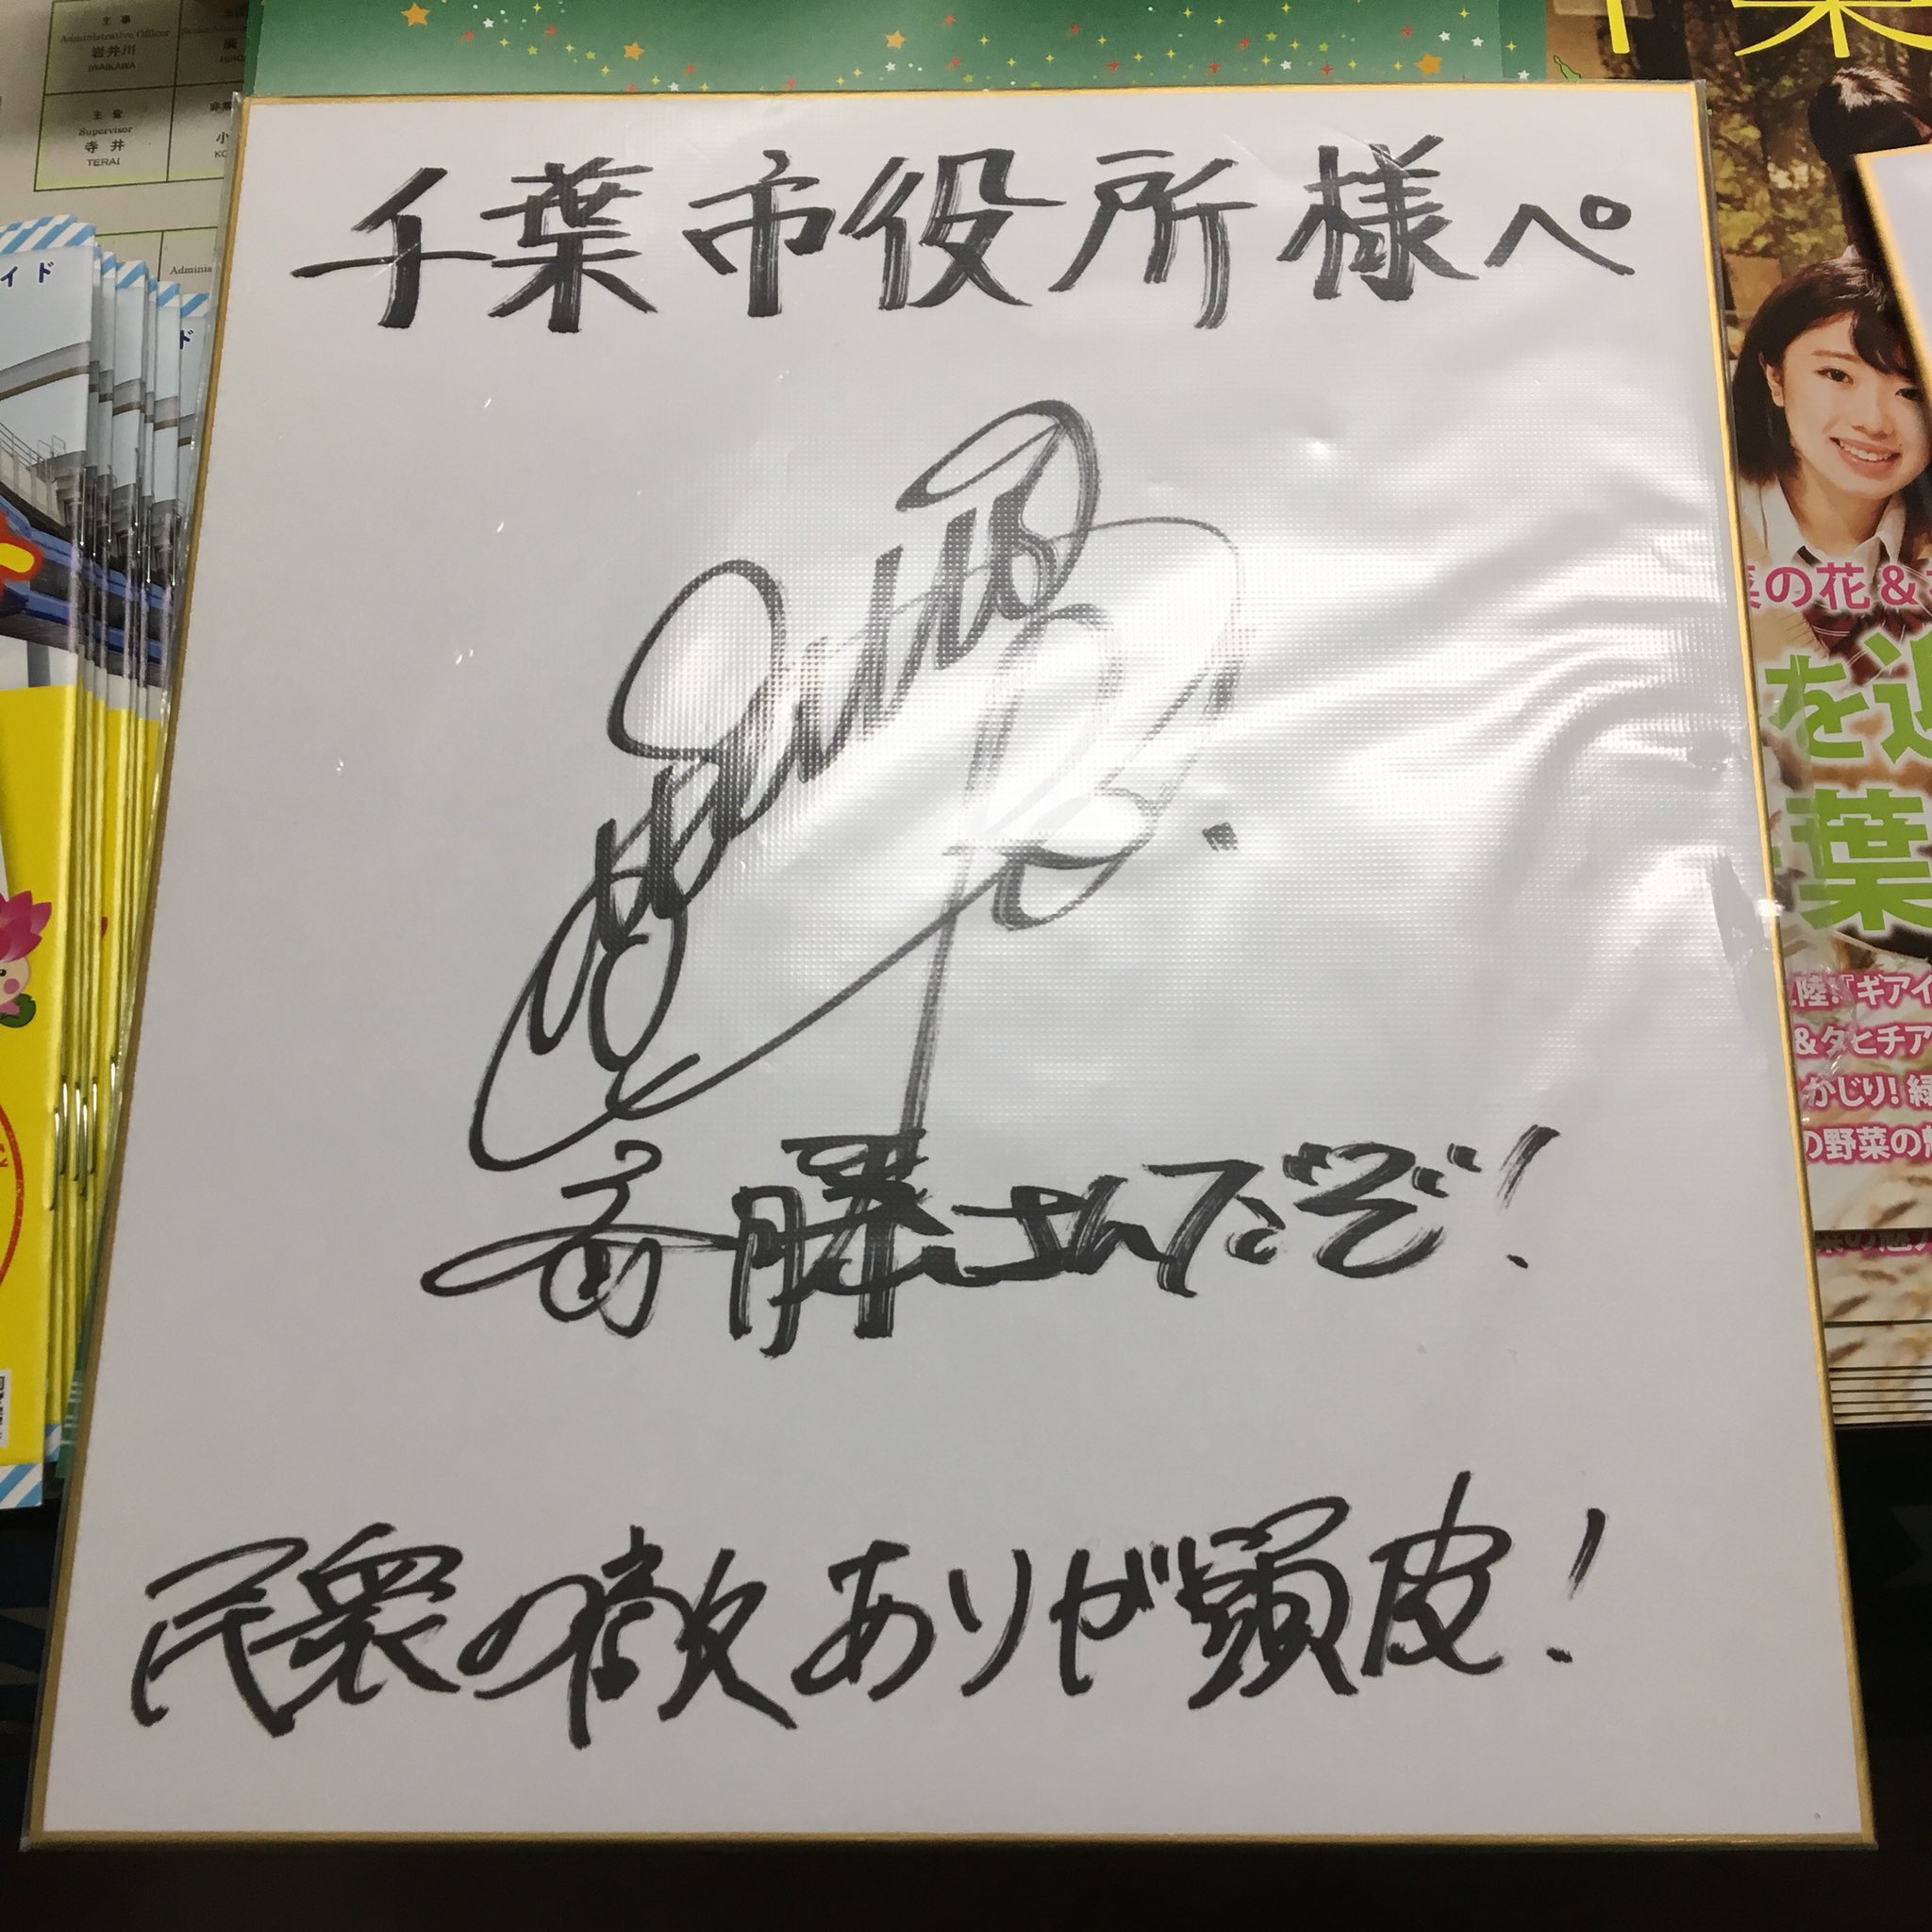 主事
Administrative Officer
岩井川
IWAIKAWA
主査
Supervisor
寺井
TERAI
小
Adminis
イド
ド
千葉市役所様ぺ
斉藤さんだぞ!
民衆の敵ありが頭皮!
菜の花&
を
葉
陸!「ギアイ
&タヒチア
かじり!緑
の野菜の